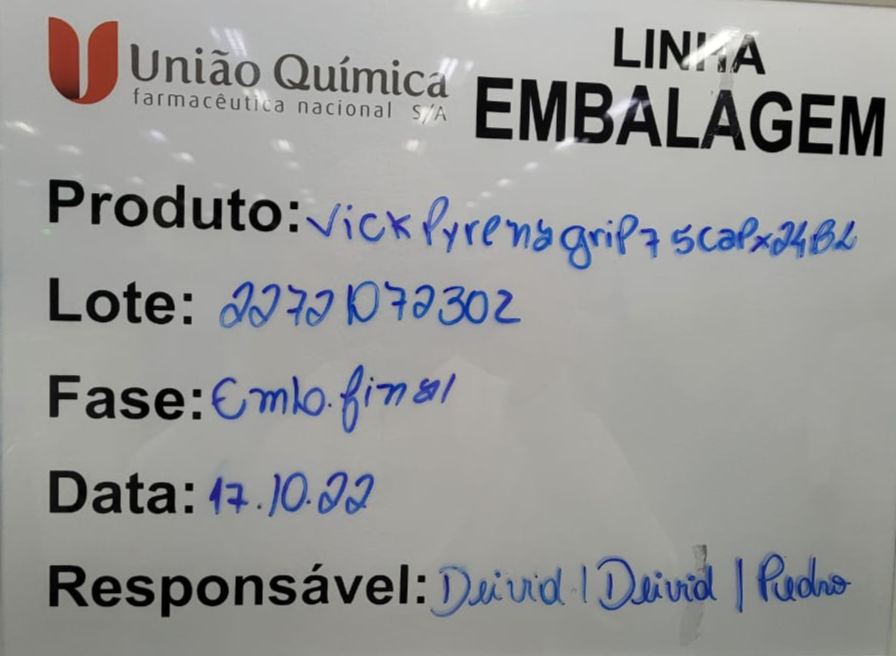 União Química
farmacêutica nacional S/A
LINHA
EMBALAGEM
Produto: Vick Pyrena grip 7 5CaPx24BL
Lote: 2272D72302
Fase: Emb. final
Data: 17.10.22
Responsável: Deivid | Deivid | Pedro